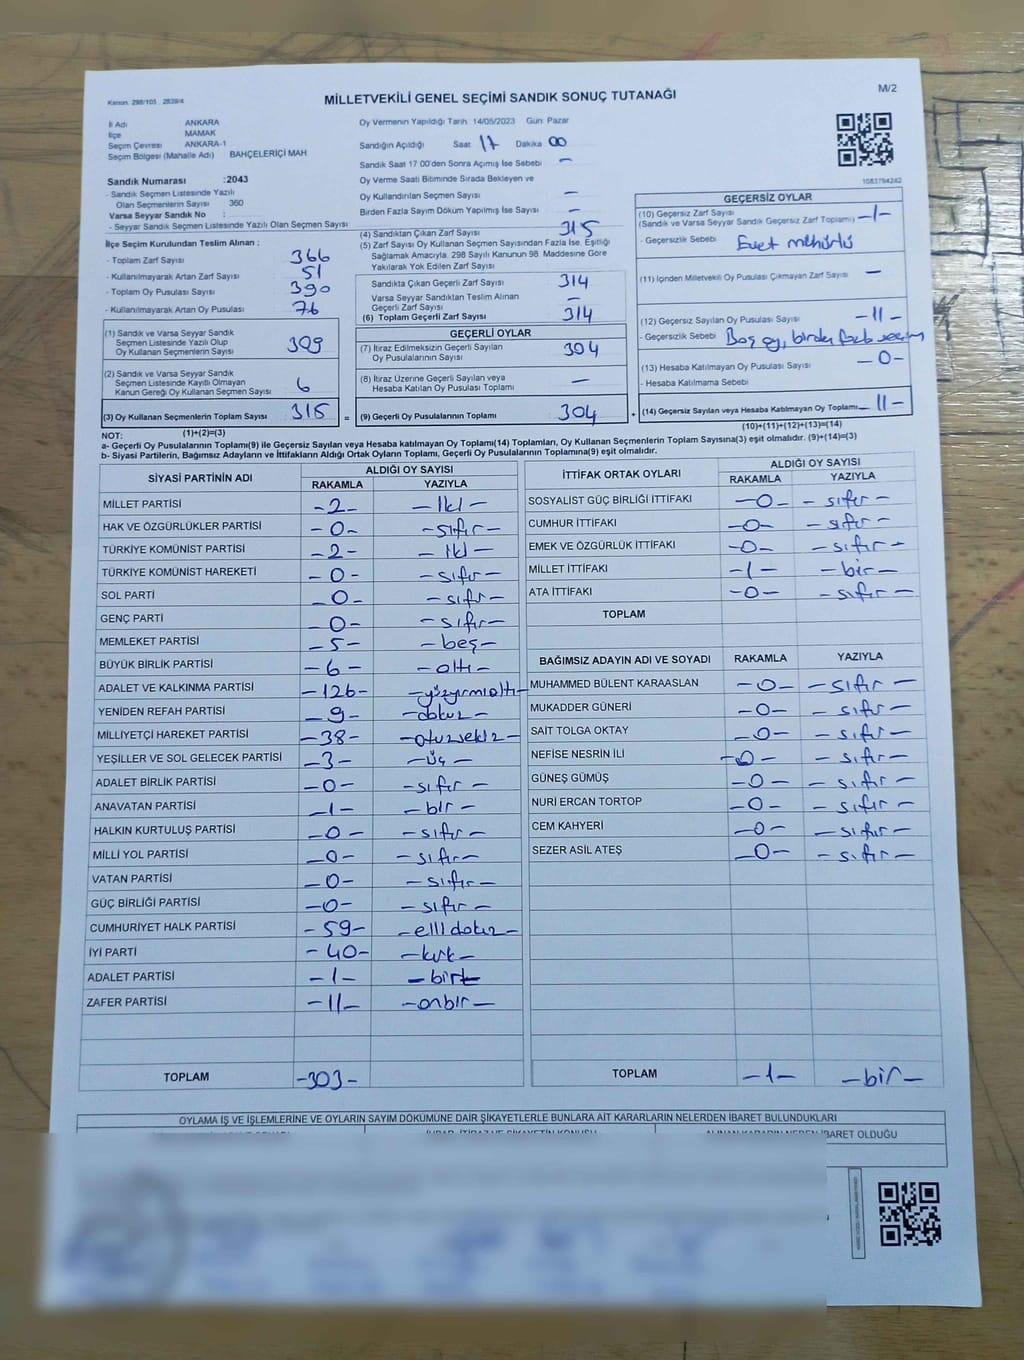 Kanun. 298/105 . 2839/4
MİLLETVEKİLİ GENEL SEÇİMİ SANDIK SONUÇ TUTANAĞI
M/2
İl Adı ANKARA
İlçe MAMAK
Seçim Çevresi ANKARA-1
Seçim Bölgesi (Mahalle Adı) BAHÇELERİÇİ MAH
Sandık Numarası :2043
- Sandık Seçmen Listesinde Yazılı
Olan Seçmenlerin Sayısı 360
Varsa Seyyar Sandık No :
- Seyyar Sandık Seçmen Listesinde Yazılı Olan Seçmen Sayısı
İlçe Seçim Kurulundan Teslim Alınan :
- Toplam Zarf Sayısı 366
- Kullanılmayarak Artan Zarf Sayısı 51
- Toplam Oy Pusulası Sayısı 390
- Kullanılmayarak Artan Oy Pusulası 76
(1) Sandık ve Varsa Seyyar Sandık
Seçmen Listesinde Yazılı Olup
Oy Kullanan Seçmenlerin Sayısı 309
(2) Sandık ve Varsa Seyyar Sandık
Seçmen Listesinde Kayıtlı Olmayan
Kanun Gereği Oy Kullanan Seçmen Sayısı 6
(3) Oy Kullanan Seçmenlerin Toplam Sayısı 315 =
(1)+(2)=(3)
Oy Vermenin Yapıldığı Tarih 14/05/2023 Gün Pazar
Sandığın Açıldığı Saat 17 Dakika 00
Sandık Saat 17 00'den Sonra Açımış İse Sebebi –
Oy Verme Saati Bitiminde Sırada Bekleyen ve
Oy Kullandırılan Seçmen Sayısı –
Birden Fazla Sayım Döküm Yapılmış İse Sayısı –
(4) Sandıktan Çıkan Zarf Sayısı 315
(5) Zarf Sayısı Oy Kullanan Seçmen Sayısından Fazla İse, Eşitliği
Sağlamak Amacıyla, 298 Sayılı Kanunun 98. Maddesine Göre
Yakılarak Yok Edilen Zarf Sayısı
Sandıkta Çıkan Geçerli Zarf Sayısı 314
Varsa Seyyar Sandıktan Teslim Alınan
Geçerli Zarf Sayısı –
(6) Toplam Geçerli Zarf Sayısı 314
GEÇERLİ OYLAR
(7) İtiraz Edilmeksizin Geçerli Sayılan
Oy Pusulalarının Sayısı 304
(8) İtiraz Üzerine Geçerli Sayılan veya
Hesaba Katılan Oy Pusulası Toplamı –
(9) Geçerli Oy Pusulalarının Toplamı 304 +
1083794242
GEÇERSİZ OYLAR
(10) Geçersiz Zarf Sayısı
(Sandık ve Varsa Seyyar Sandık Geçersiz Zarf Toplamı) –1–
- Geçersizlik Sebebi Evet mühürlü
(11) İçinden Milletvekili Oy Pusulası Çıkmayan Zarf Sayısı –
(12) Geçersiz Sayılan Oy Pusulası Sayısı –11–
- Geçersizlik Sebebi Boş oy, birden fazla seçim
(13) Hesaba Katılmayan Oy Pusulası Sayısı –0–
- Hesaba Katılmama Sebebi
(14) Geçersiz Sayılan veya Hesaba Katılmayan Oy Toplamı –11–
(10)+(11)+(12)+(13)=(14)
NOT:
a- Geçerli Oy Pusulalarının Toplamı(9) ile Geçersiz Sayılan veya Hesaba katılmayan Oy Toplamı(14) Toplamları, Oy Kullanan Seçmenlerin Toplam Sayısına(3) eşit olmalıdır. (9)+(14)=(3)
b- Siyasi Partilerin, Bağımsız Adayların ve İttifakların Aldığı Ortak Oyların Toplamı, Geçerli Oy Pusulalarının Toplamına(9) eşit olmalıdır.
SİYASİ PARTİNİN ADI ALDIĞI OY SAYISI
RAKAMLA YAZIYLA
MİLLET PARTİSİ –2– –İki–
HAK VE ÖZGÜRLÜKLER PARTİSİ –0– –sıfır–
TÜRKİYE KOMÜNİST PARTİSİ –2– –İki–
TÜRKİYE KOMÜNİST HAREKETİ –0– –sıfır–
SOL PARTİ –0– –sıfır–
GENÇ PARTİ –0– –sıfır–
MEMLEKET PARTİSİ –5– –beş–
BÜYÜK BİRLİK PARTİSİ –6– –altı–
ADALET VE KALKINMA PARTİSİ –126– –yüzyirmialtı–
YENİDEN REFAH PARTİSİ –9– –dokuz–
MİLLİYETÇİ HAREKET PARTİSİ –38– –otuzsekiz–
YEŞİLLER VE SOL GELECEK PARTİSİ –3– –üç–
ADALET BİRLİK PARTİSİ –0– –sıfır–
ANAVATAN PARTİSİ –1– –bir–
HALKIN KURTULUŞ PARTİSİ –0– –sıfır–
MİLLİ YOL PARTİSİ –0– –sıfır–
VATAN PARTİSİ –0– –sıfır–
GÜÇ BİRLİĞİ PARTİSİ –0– –sıfır–
CUMHURİYET HALK PARTİSİ –59– –ellidokuz–
İYİ PARTİ –40– –kırk–
ADALET PARTİSİ –1– –bir–
ZAFER PARTİSİ –11– –onbir–
TOPLAM –303–
İTTİFAK ORTAK OYLARI ALDIĞI OY SAYISI
RAKAMLA YAZIYLA
SOSYALİST GÜÇ BİRLİĞİ İTTİFAKI –0– –sıfır–
CUMHUR İTTİFAKI –0– –sıfır–
EMEK VE ÖZGÜRLÜK İTTİFAKI –0– –sıfır–
MİLLET İTTİFAKI –1– –bir–
ATA İTTİFAKI –0– –sıfır–
TOPLAM
BAĞIMSIZ ADAYIN ADI VE SOYADI RAKAMLA YAZIYLA
MUHAMMED BÜLENT KARAASLAN –0– –sıfır–
MUKADDER GÜNERİ –0– –sıfır–
SAİT TOLGA OKTAY –0– –sıfır–
NEFİSE NESRİN İLİ –0– –sıfır–
GÜNEŞ GÜMÜŞ –0– –sıfır–
NURİ ERCAN TORTOP –0– –sıfır–
CEM KAHYERİ –0– –sıfır–
SEZER ASİL ATEŞ –0– –sıfır–
TOPLAM –1– –bir–
OYLAMA İŞ VE İŞLEMLERİNE VE OYLARIN SAYIM DÖKÜMÜNE DAİR ŞİKAYETLERLE BUNLARA AİT KARARLARIN NELERDEN İBARET BULUNDUKLARI
İBARET OLDUĞU